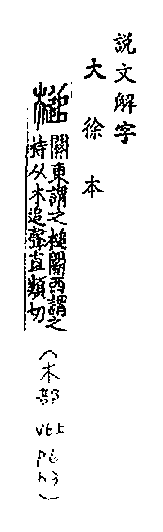 説文解字
大徐本
關東謂之槌關西謂之
持从木追聲直類切
(木部